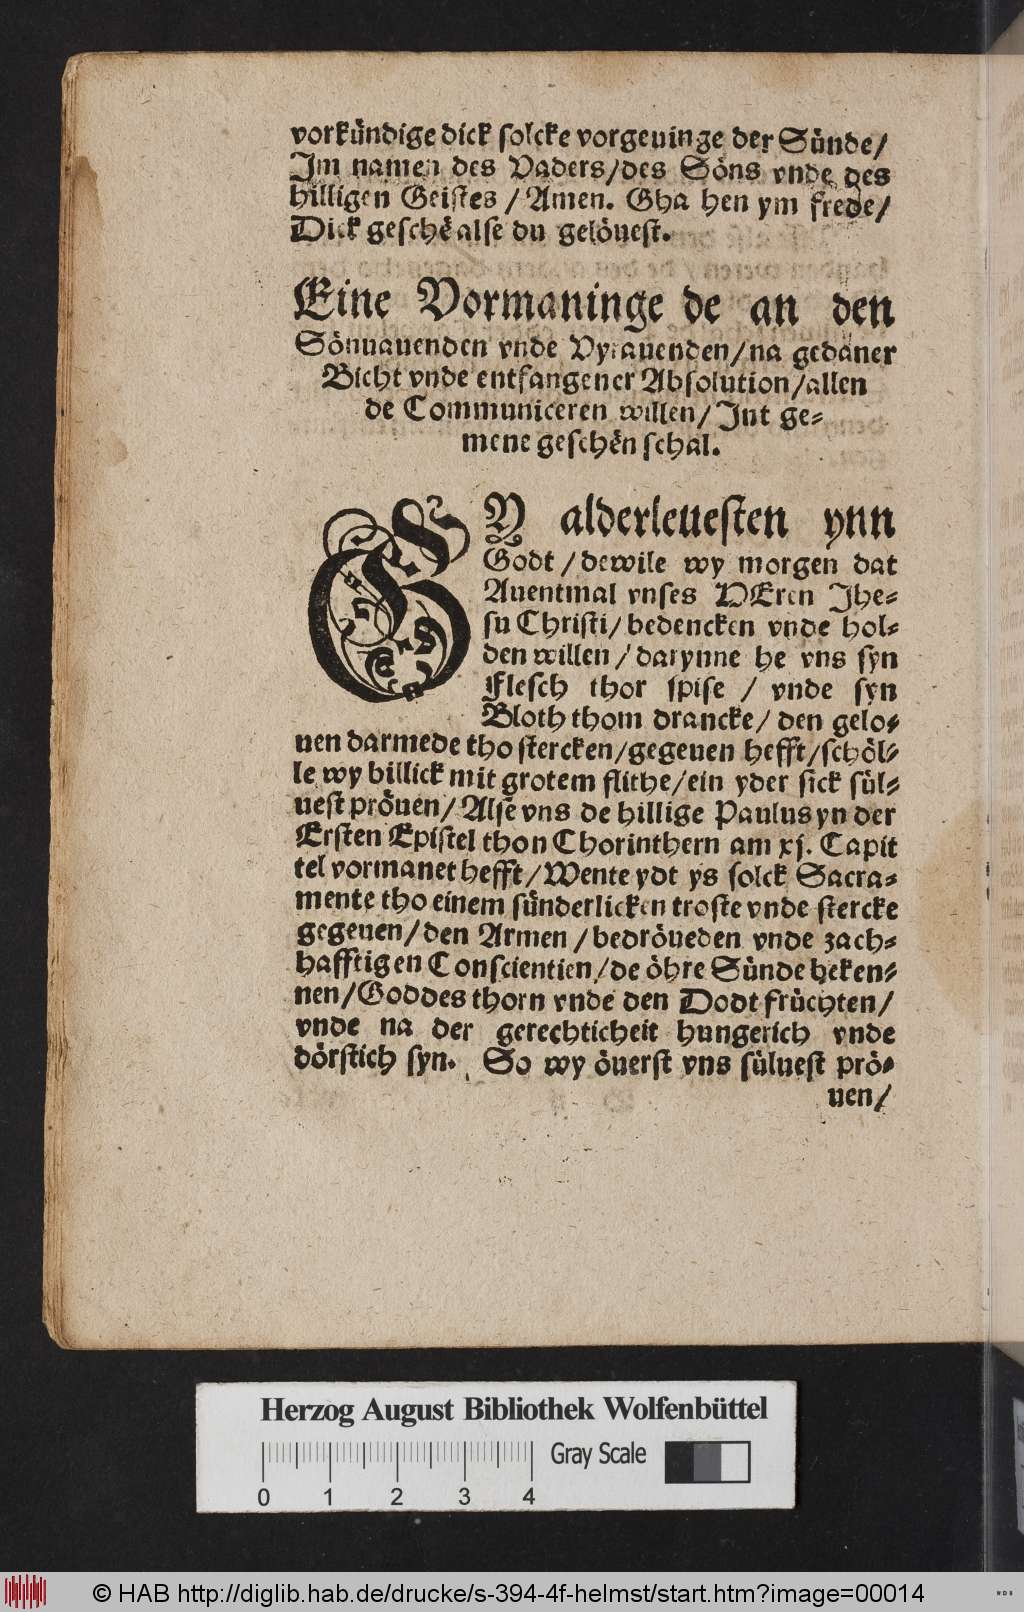 vorkündige dick solcke vorgeuinge der Sünde/
Im namen des Vaders/des Söns vnde des
hilligen Geistes / Amen. Gha hen ym frede/
Dick geschẽ alse du gelöuest.
Eine Vormaninge de an den
Sönuauenden vnde Vyrauenden/na gedaner
Bicht vnde entfangener Absolution/allen
de Communiceren willen/Int ge-
mene geschẽn schal.
GY alderleuesten ynn
Godt / dewile wy morgen dat
Auentmal vnses HEren Jhe-
su Christi/bedencken vnde hol-
den willen / darynne he vns syn
Flesch thor spise / vnde syn
Bloth thom drancke/ den gelo-
uen darmede tho stercken/gegeuen hefft/schöl-
le wy billick mit grotem flithe/ein yder sick sül-
uest pröuen/Alse vns de hillige Paulus yn der
Ersten Epistel thon Chorinthern am xj. Capit
tel vormanet hefft/Wente ydt ys solck Sacra-
mente tho einem sünderlicken troste vnde stercke
gegeuen/den Armen /bedröueden vnde zach-
hafftigen Conscientien/de öhre Sünde beken-
nen/Goddes thorn vnde den Dodt früchten/
vnde na der gerechticheit hungerich vnde
dörstich syn. So wy öuerst vns süluest prö-
uen/
Herzog August Bibliothek Wolfenbüttel
0 1 2 3 4 Gray Scale
© HAB http://diglib.hab.de/drucke/s-394-4f-helmst/start.htm?image=00014